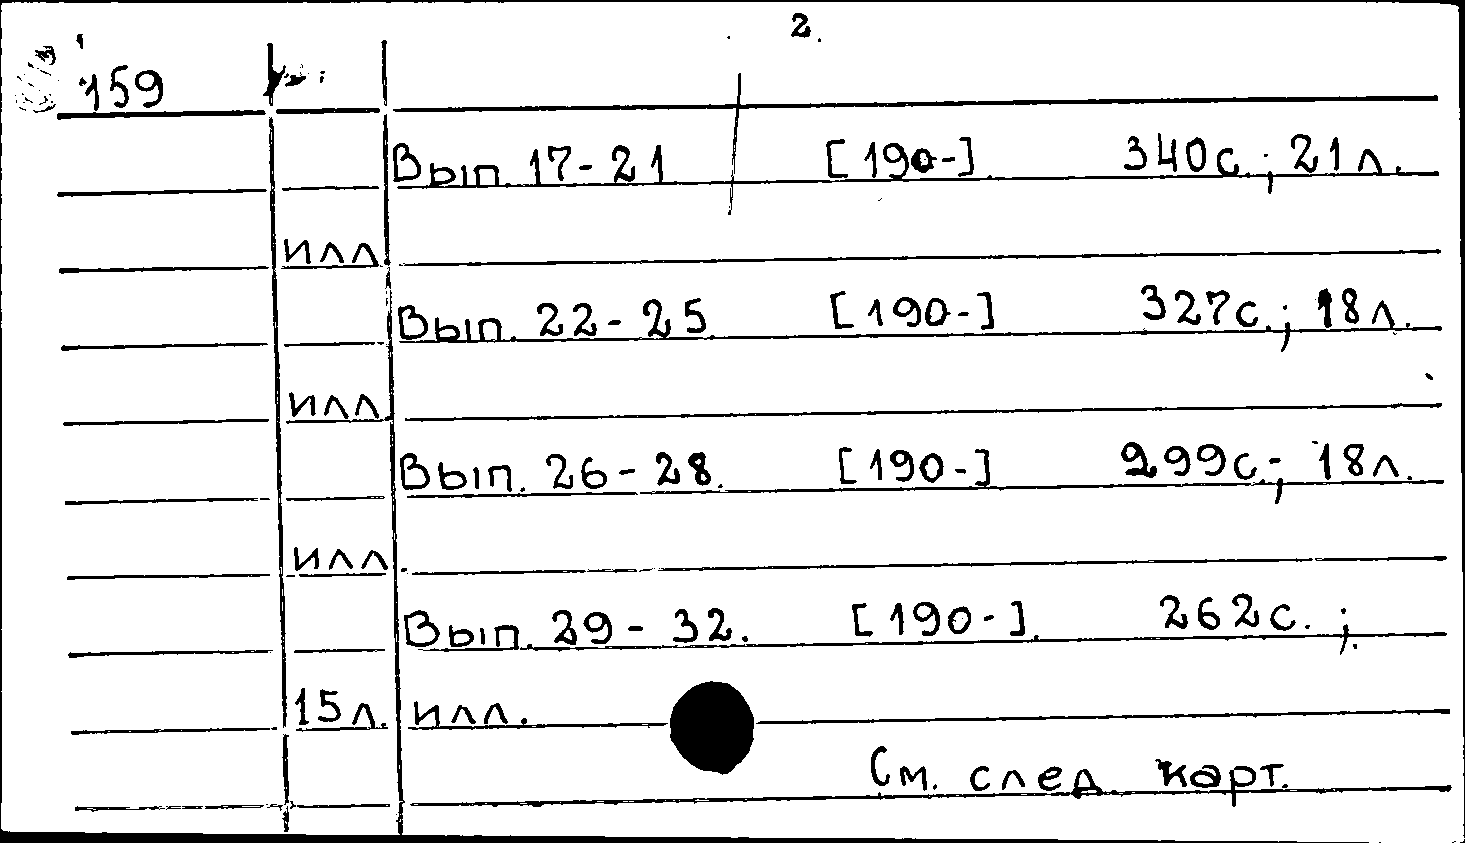 2.
159
Вып. 17-21 [190-] 340с.; 21л.
илл.
Вып. 22-25. [190-] 327с.; 18л.
илл.
Вып. 26-28. [190-] 299с.; 18л.
илл.
Вып. 29-32. [190-]. 262с.;
15л. илл.
См. след. карт.